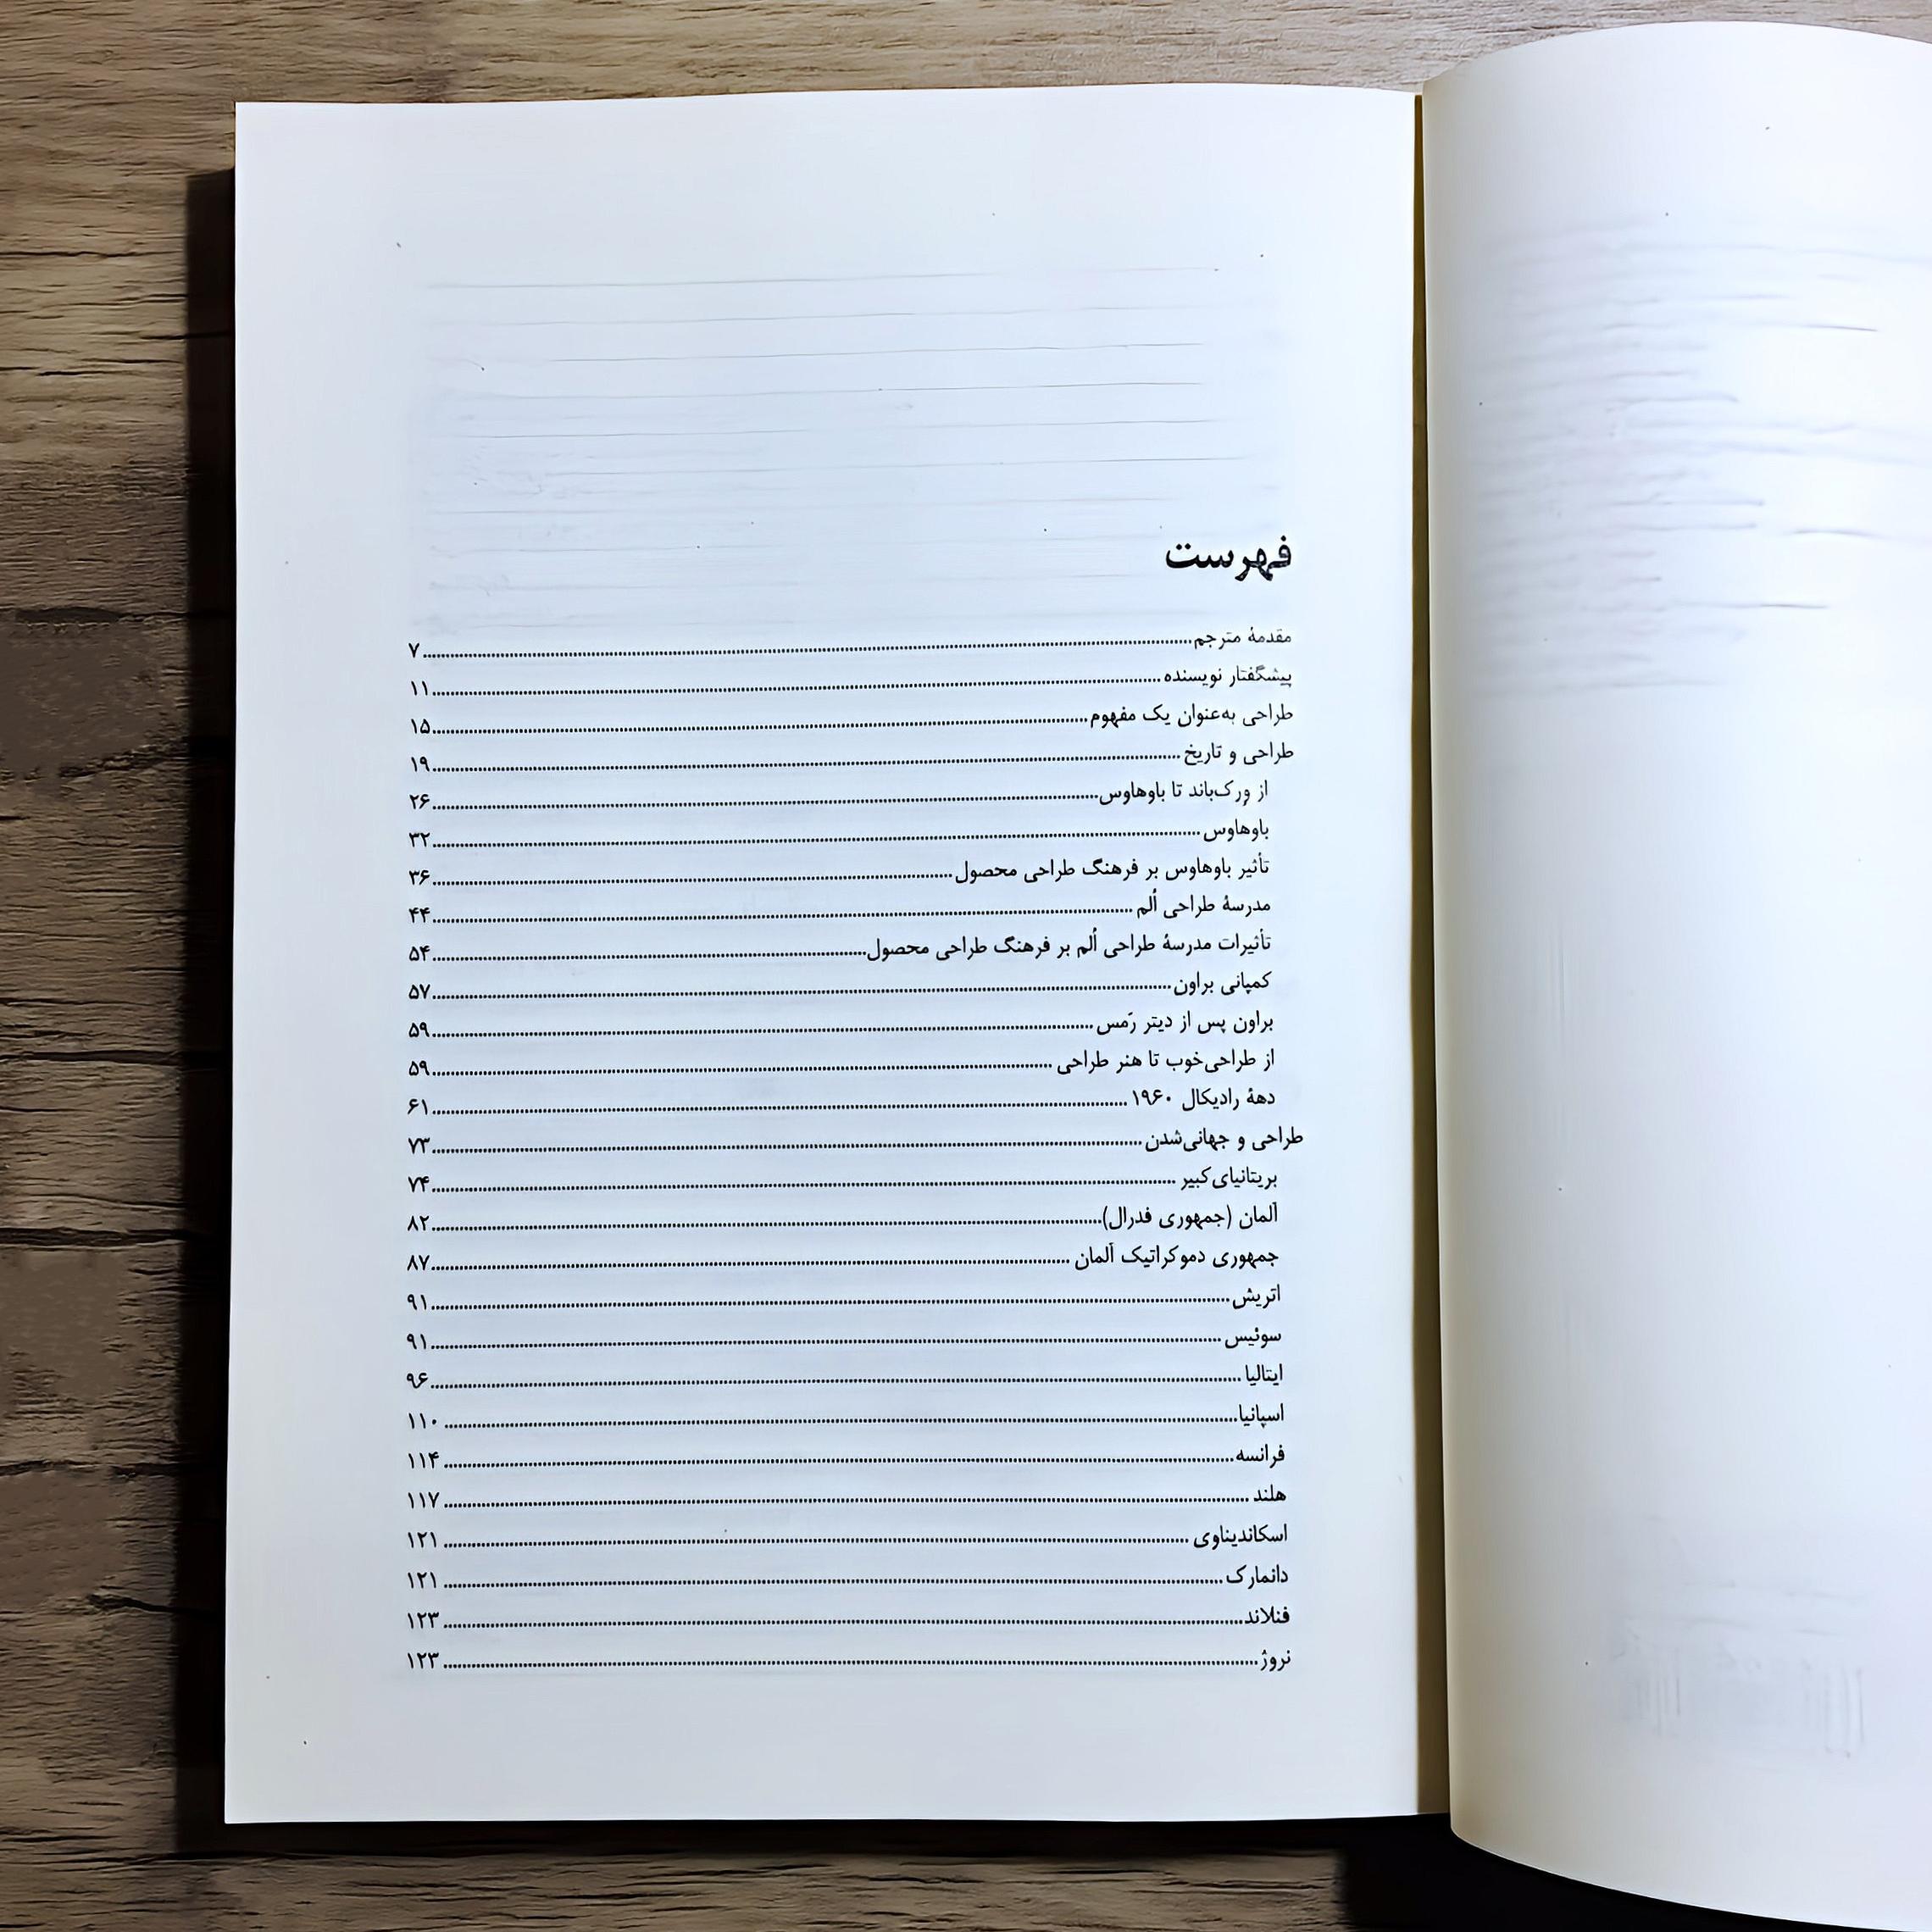 فهرست
مقدمهٔ مترجم ........ ۷
پیشگفتار نویسنده ........ ۱۱
طراحی به‌عنوان یک مفهوم ........ ۱۵
طراحی و تاریخ ........ ۱۹
از وِرک‌باند تا باوهاوس ........ ۲۶
باوهاوس ........ ۳۲
تأثیر باوهاوس بر فرهنگ طراحی محصول ........ ۳۶
مدرسهٔ طراحی اُلم ........ ۴۴
تأثیرات مدرسهٔ طراحی اُلم بر فرهنگ طراحی محصول ........ ۵۴
کمپانی براون ........ ۵۷
براون پس از دیتر رَمس ........ ۵۹
از طراحی‌خوب تا هنر طراحی ........ ۵۹
دههٔ رادیکال ۱۹۶۰ ........ ۶۱
طراحی و جهانی‌شدن ........ ۷۳
بریتانیای‌کبیر ........ ۷۴
آلمان (جمهوری فدرال) ........ ۸۲
جمهوری دموکراتیک آلمان ........ ۸۷
اتریش ........ ۹۱
سوئیس ........ ۹۱
ایتالیا ........ ۹۶
اسپانیا ........ ۱۱۰
فرانسه ........ ۱۱۴
هلند ........ ۱۱۷
اسکاندیناوی ........ ۱۲۱
دانمارک ........ ۱۲۱
فنلاند ........ ۱۲۳
نروژ ........ ۱۲۳